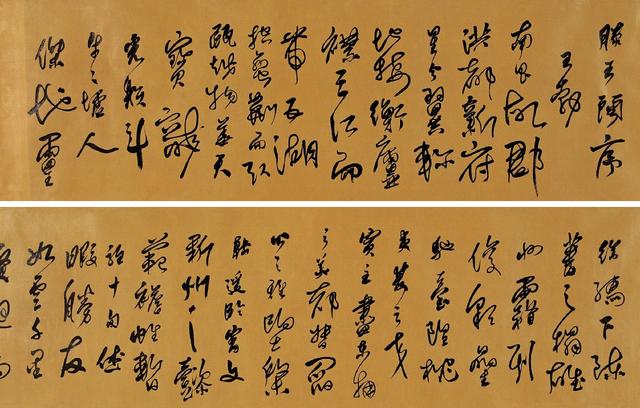 滕王閣序
王勃
南昌故郡
洪都新府
星分翼軫
地接衡廬
襟三江而
帶五湖
控蠻荊而引
甌越物華天
寶龍
光射斗
牛之墟人
傑地靈
徐孺下陳
蕃之榻雄
州霧列
俊彩星
馳臺隍枕
夷夏之交
賓主盡東南
之美都督閻
公之雅望棨
戟遙臨宇文
新州之懿
範襜帷暫
駐十旬休
暇勝友
如雲千里